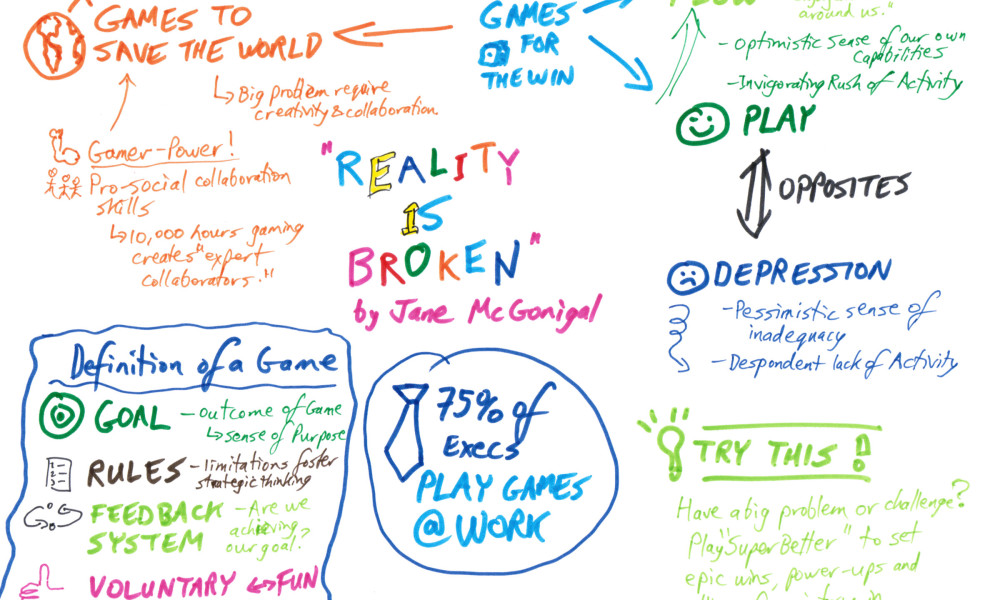 GAMES TO
SAVE THE WORLD
Big problem require
creativity & collaboration
Gamer-Power!
Pro-social collaboration
skills
10,000 hours gaming
creates "expert
collaborators."
GAMES
FOR
THE WIN
around us."
- Optimistic sense of our own
Capabilities
- Invigorating Rush of Activity
PLAY
OPPOSITES
DEPRESSION
- Pessimistic sense of
inadequacy
- Despondent lack of Activity
"REALITY
IS
BROKEN"
by Jane McGonigal
Definition of a Game
GOAL - outcome of Game
sense of Purpose
RULES - limitations foster
strategic thinking
FEEDBACK
SYSTEM
- Are we
achieving
our goal?
VOLUNTARY ↔ FUN
75% of
Execs
PLAY GAMES
@ WORK
TRY THIS!
Have a big problem or challenge?
Play "SuperBetter" to set
epic wins, power-ups and